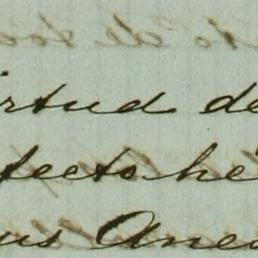 irtud de
fecto he
us Anex